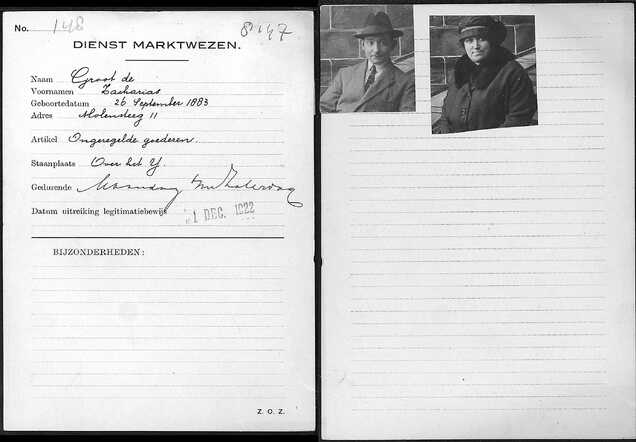 No. 148 8447
DIENST MARKTWEZEN.
Naam Groot de
Voornamen Zacharias
Geboortedatum 26 September 1883
Adres Molensteeg 11
Artikel Ongeregelde goederen.
Staanplaats Over het Y.
Gedurende Maandag t/m Zaterdag
Datum uitreiking legitimatiebewijs 1 DEC. 1922
BIJZONDERHEDEN:
Z. O. Z.